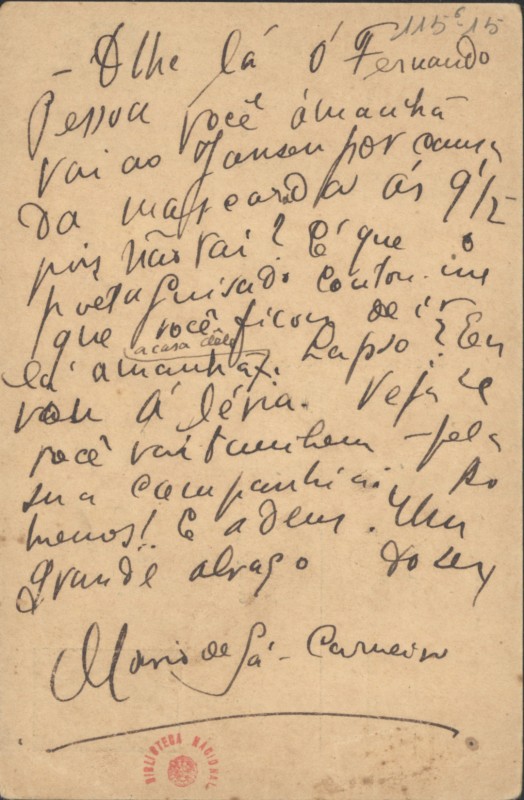 115⁶-15
– Olhe lá ó Fernando
Pessoa você ámanhã
vai ao Jansen por causa
da mascarada ás 9½
pois não vai? É que o
poeta Guisado contou-me
que você ficou de ir
a casa dele
lá amanhã. Lapso? Eu
vou á séria. Veja se
você vai tambem – pela
sua companhia, Ao
menos! E adeus. Um
grande abraço do seu
Mario de Sá-Carneiro
BIBLIOTECA NACIONAL